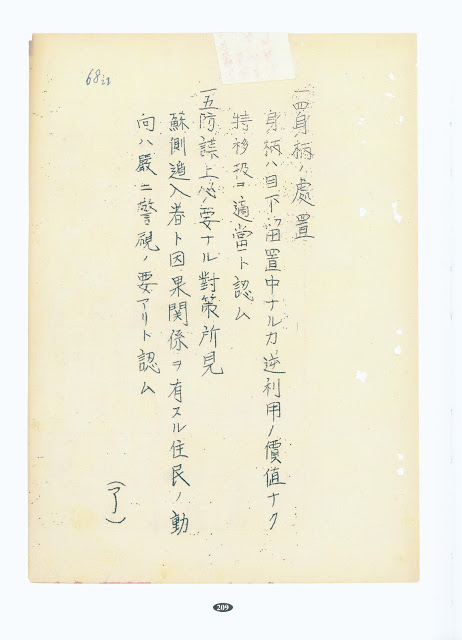 68
一四、身柄ノ處置
身柄ハ目下留置中ナルカ逆利用ノ價値ナク
特移扱ヲ適當ト認ム
一五、防諜上必要ナル對策所見
蘇側進入者ト因果關係ヲ有スル住民ノ動
向ハ嚴ニ警視ノ要アリト認ム
(了)
209